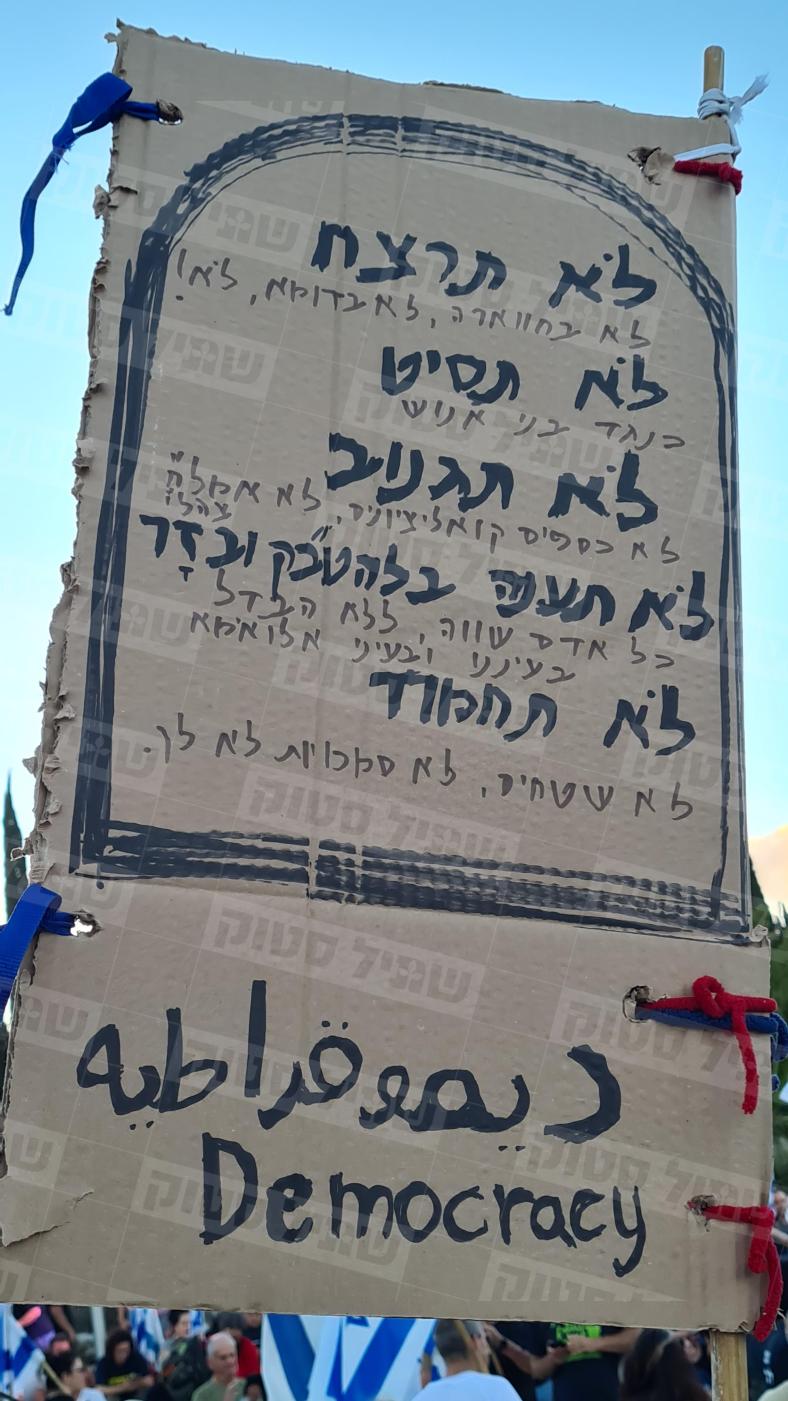 לא תרצח
לא בחווארה, לא בדומא, לא!
לא תסיט
כנגד בני אנוש
לא תגנוב
לא כספים קואליציונים, לא אמל"ח
צהלי
לא תענה בלהט"בק ובזר
כל אדם שווה, ללא הבדל
בעיננו ובעיני אלו
לא תחמוד
לא שטחים, לא סמכויות לא לך.
ديموقراطيه
Democracy
שתיל סטוק